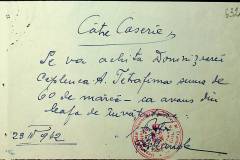 Către Caserie,
Se va achita Domnișoarei
Ceplenca A. Tetrafima suma de
60 de mărci – ca avans din
leafa de învățătoare.
23 IV 942